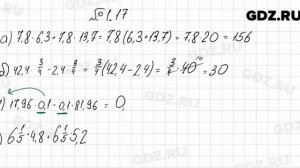 GDZ.RU
№1.17
а) 7,8·6,3+7,8·13,7=7,8(6,3+13,7)=7,8·20=156
б) 42,4·3/4-2,4·3/4=3/4(42,4-2,4)=3/4·40=30
) 17,96·0,1-0,1·81,96=0,
) 6 1/5·4,8+6 1/5·5,2
GDZ.RU